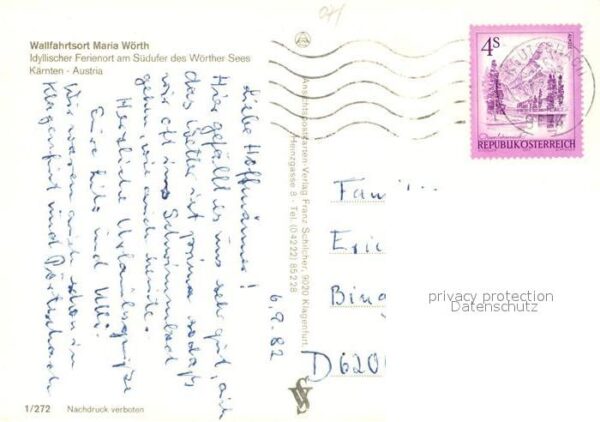 Wallfahrtsort Maria Wörth
Idyllischer Ferienort am Südufer des Wörther Sees
Kärnten - Austria
4 S
REPUBLIK ÖSTERREICH
6.9.82
Liebe Hoffmänner!
Hier gefällt es uns sehr gut, auch
das Wetter ist prima sodaß
wir oft ins Schwimmbad
gehn, wie auch heute.
Herzliche Urlaubsgrüße
Eure Lilo und Ulli.
Wir waren auch schon in
Klagenfurt und Pörtschach
Ansichtspostkarten-Verlag Franz Schilcher, 9020 Klagenfurt,
Heinzgasse 8 - Tel. (04222) 85228
Fam
Eric
Bing
D620
privacy protection
Datenschutz
1/272 Nachdruck verboten